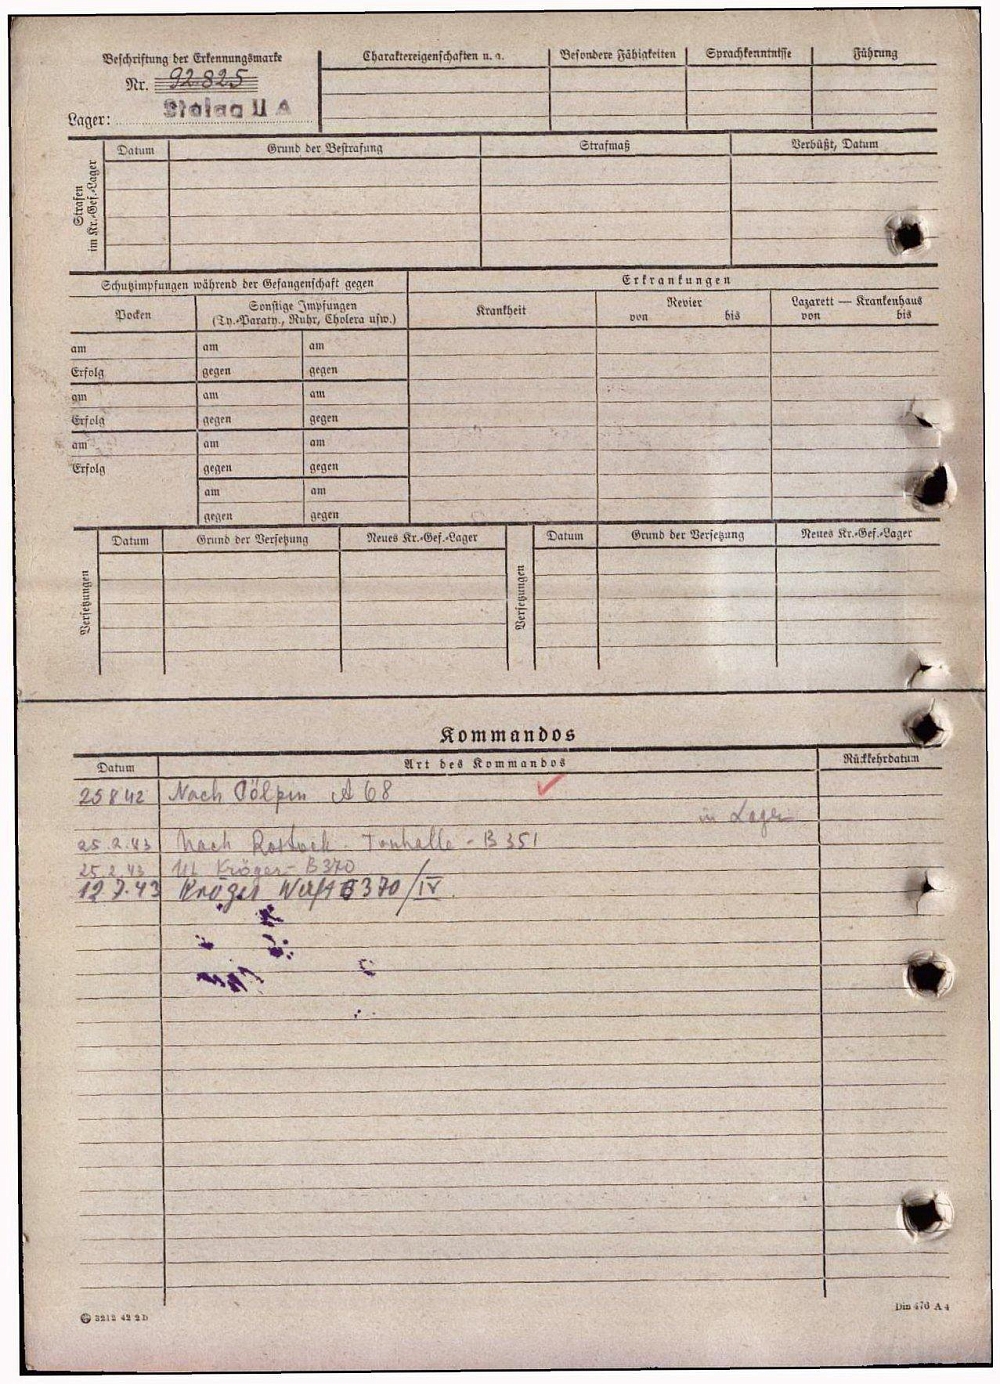 Beschriftung der Erkennungsmarke
Nr. 92825
Lager: Stalag II A
Charaktereigenschaften u. a.
Besondere Fähigkeiten
Sprachkenntnisse
Führung
Strafen im Kr.-Gef.-Lager
Datum
Grund der Bestrafung
Strafmaß
Verbüßt, Datum
Schutzimpfungen während der Gefangenschaft gegen
Erkrankungen
Pocken
Sonstige Impfungen
(Ty.-Paraty., Ruhr, Cholera usw.)
Krankheit
Revier
von bis
Lazarett — Krankenhaus
von bis
am am am
Erfolg gegen gegen
am am am
Erfolg gegen gegen
am am am
Erfolg gegen gegen
am am
gegen gegen
Versetzungen
Datum
Grund der Versetzung
Neues Kr.-Gef.-Lager
Versetzungen
Datum
Grund der Versetzung
Neues Kr.-Gef.-Lager
Kommandos
Datum
Art des Kommandos
Rückkehrdatum
25 8 42 Nach Cölpin A 68
in Lager
25.2.43 Nach Rostock - Tonhalle - B 351
25.2.43 Kröger - B 370
12.7.43 Kröger Werft B 370/IV.
3212 42 2D
Din 476 A 4